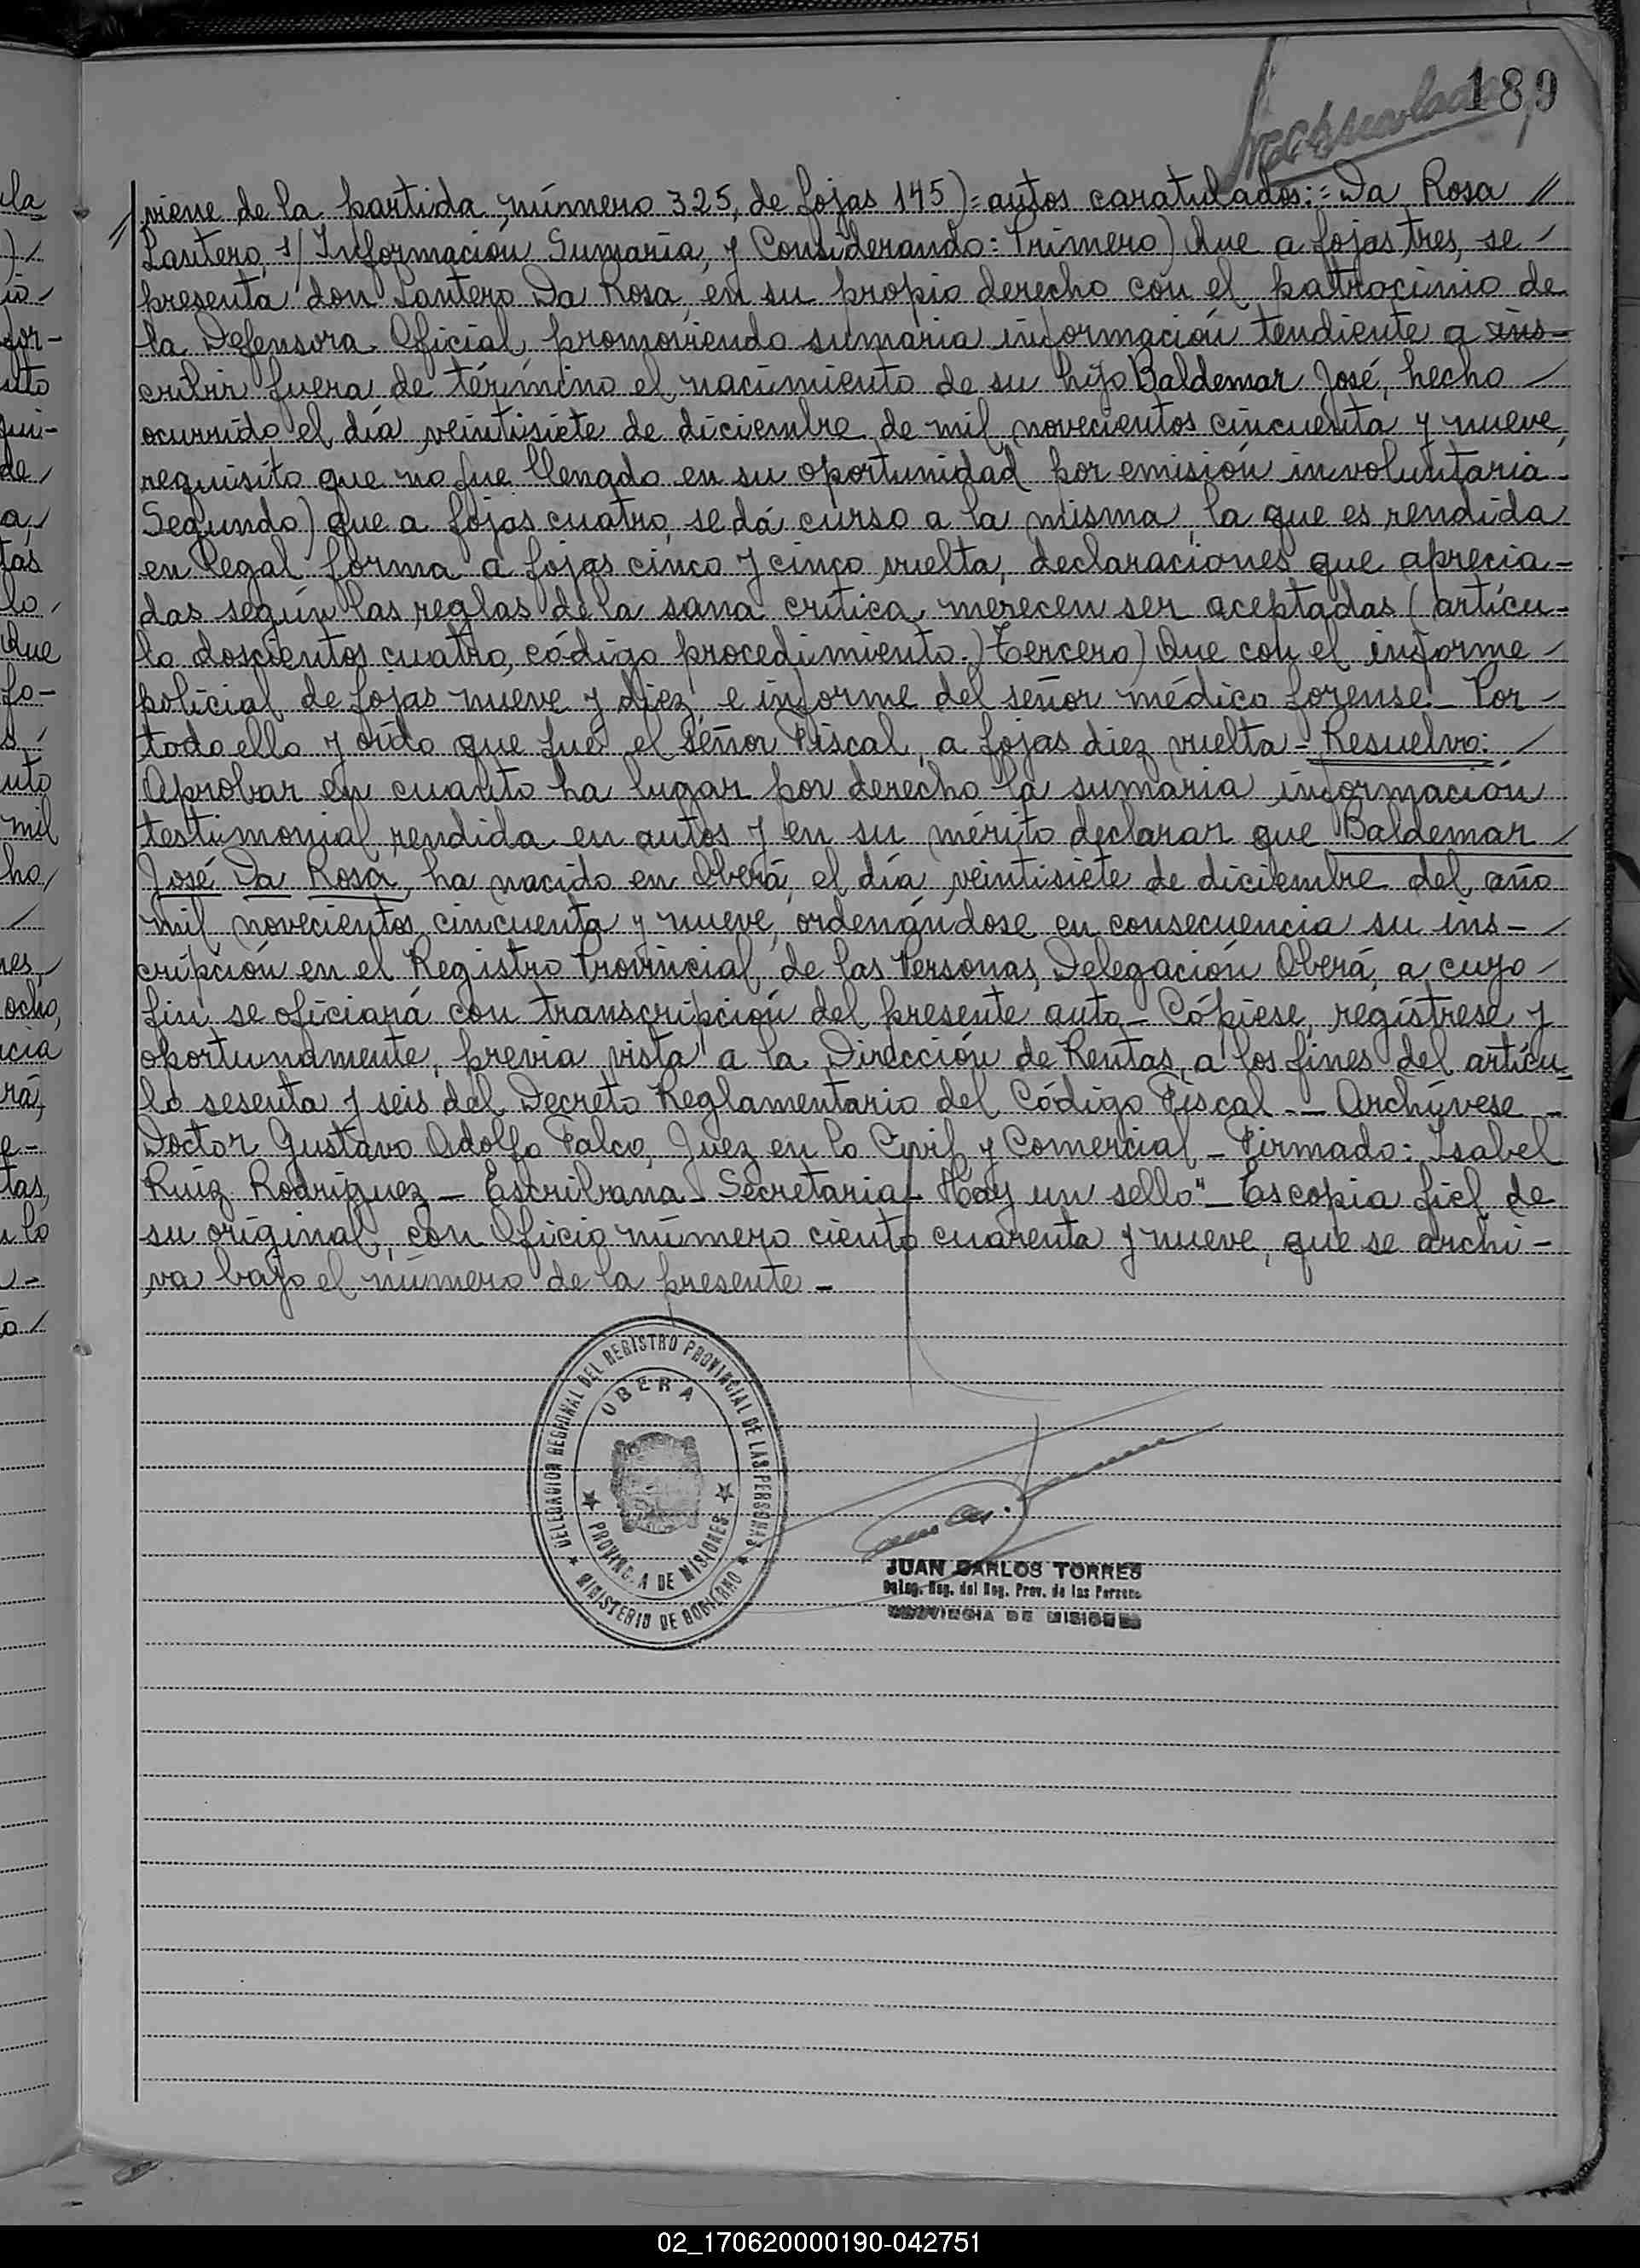 189
viene de la partida número 325, de fojas 145)= autos caratulados:= Da Rosa //
Lautero, s/ Información Sumaria, y Considerando: Primero) Que a fojas tres, se /
presenta don Lautero Da Rosa, en su propio derecho con el patrocinio de
la Defensora Oficial, promoviendo sumaria información tendiente a ins-
cribir fuera de término el nacimiento de su hijo Baldemar José, hecho /
ocurrido el día veintisiete de diciembre de mil novecientos cincuenta y nueve,
requisito que no fue llenado en su oportunidad por emisión involuntaria.
Segundo) que a fojas cuatro, se dá curso a la misma, la que es rendida
en legal forma a fojas cinco y cinco vuelta, declaraciones que aprecia-
das según las reglas de la sana crítica, merecen ser aceptadas (artícu-
lo doscientos cuatro, código procedimiento.) Tercero) Que con el informe /
policial de fojas nueve y diez, e informe del señor médico forense.- Por /
todo ello y oído que fué el Señor Fiscal, a fojas diez vuelta - Resuelvo: /
Aprobar en cuanto ha lugar por derecho la sumaria información
testimonial rendida en autos y en su mérito declarar que Baldemar /
José Da Rosa, ha nacido en Oberá, el día veintisiete de diciembre del año
mil novecientos cincuenta y nueve, ordenándose en consecuencia su ins- /
cripción en el Registro Provincial de las Personas, Delegación Oberá, a cuyo /
fin se oficiará con transcripción del presente auto - Cópiese, regístrese y
oportunamente, previa vista a la Dirección de Rentas, a los fines del artícu-
lo sesenta y seis del Decreto Reglamentario del Código Fiscal.- Archívese -
Doctor Gustavo Adolfo Falco, Juez en lo Civil y Comercial - Firmado: Isabel
Ruiz Rodríguez - Escribana - Secretaria - Hay un sello" - Es copia fiel de
su original, con Oficio número ciento cuarenta y nueve, que se archi-
va bajo el número de la presente -
DELEGACION REGIONAL DEL REGISTRO PROVINCIAL DE LAS PERSONAS
OBERA
PROVINCIA DE MISIONES
MINISTERIO DE GOBIERNO
JUAN CARLOS TORRES
Deleg. Reg. del Reg. Prov. de las Persona
PROVINCIA DE MISIONES
02_170620000190-042751